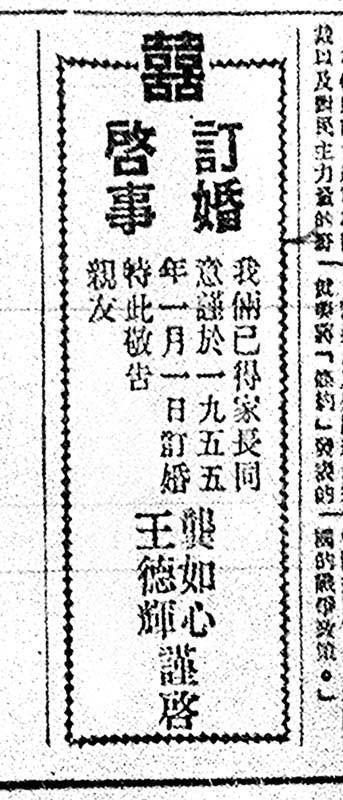 囍
訂婚
啓事
我倆已得家長同
意謹於一九五五
年一月一日訂婚
特此敬告
親友
龔如心
王德輝
謹啓
以及對民主力量的
發表的
國的戰爭政策。」